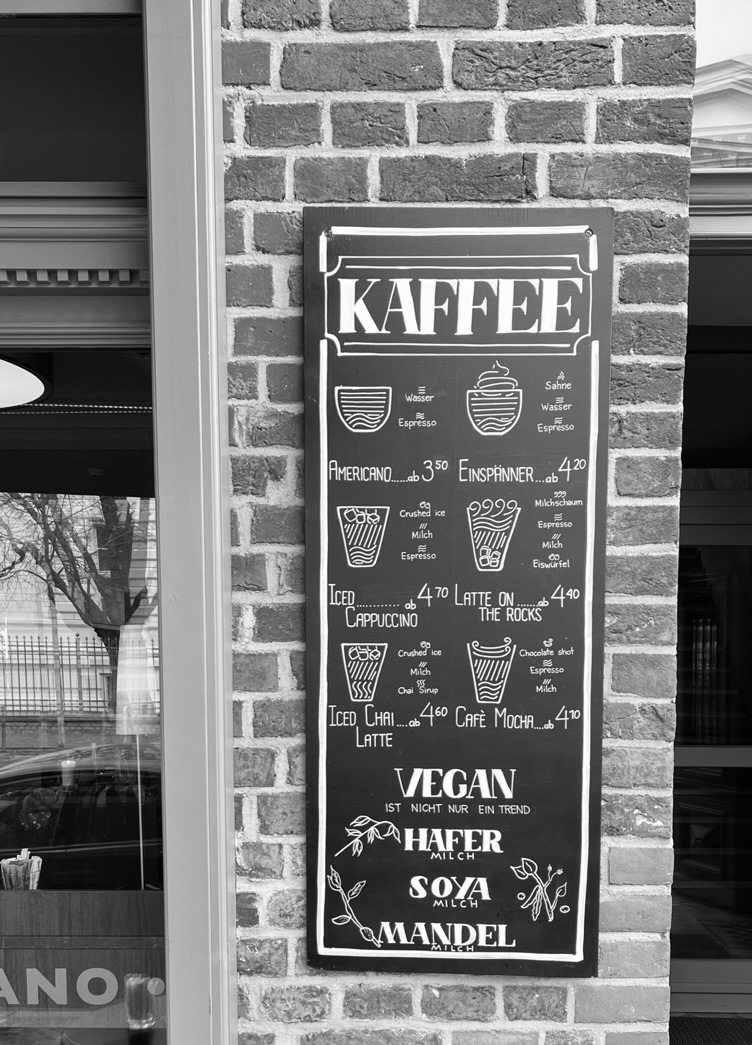 KAFFEE
Wasser
Espresso
AMERICANO......ab 3⁵⁰
Sahne
Wasser
Espresso
EINSPÄNNER....ab 4²⁰
Crushed ice
Milch
Espresso
ICED ............ ab 4⁷⁰
CAPPUCCINO
Milchschaum
Espresso
Milch
Eiswürfel
LATTE ON .......ab 4⁴⁰
THE ROCKS
Crushed ice
Milch
Chai Sirup
ICED CHAI ....ab 4⁶⁰
LATTE
Chocolate shot
Espresso
Milch
CAFÈ MOCHA....ab 4¹⁰
VEGAN
IST NICHT NUR EIN TREND
HAFER
MILCH
SOYA
MILCH
MANDEL
MILCH
ANO